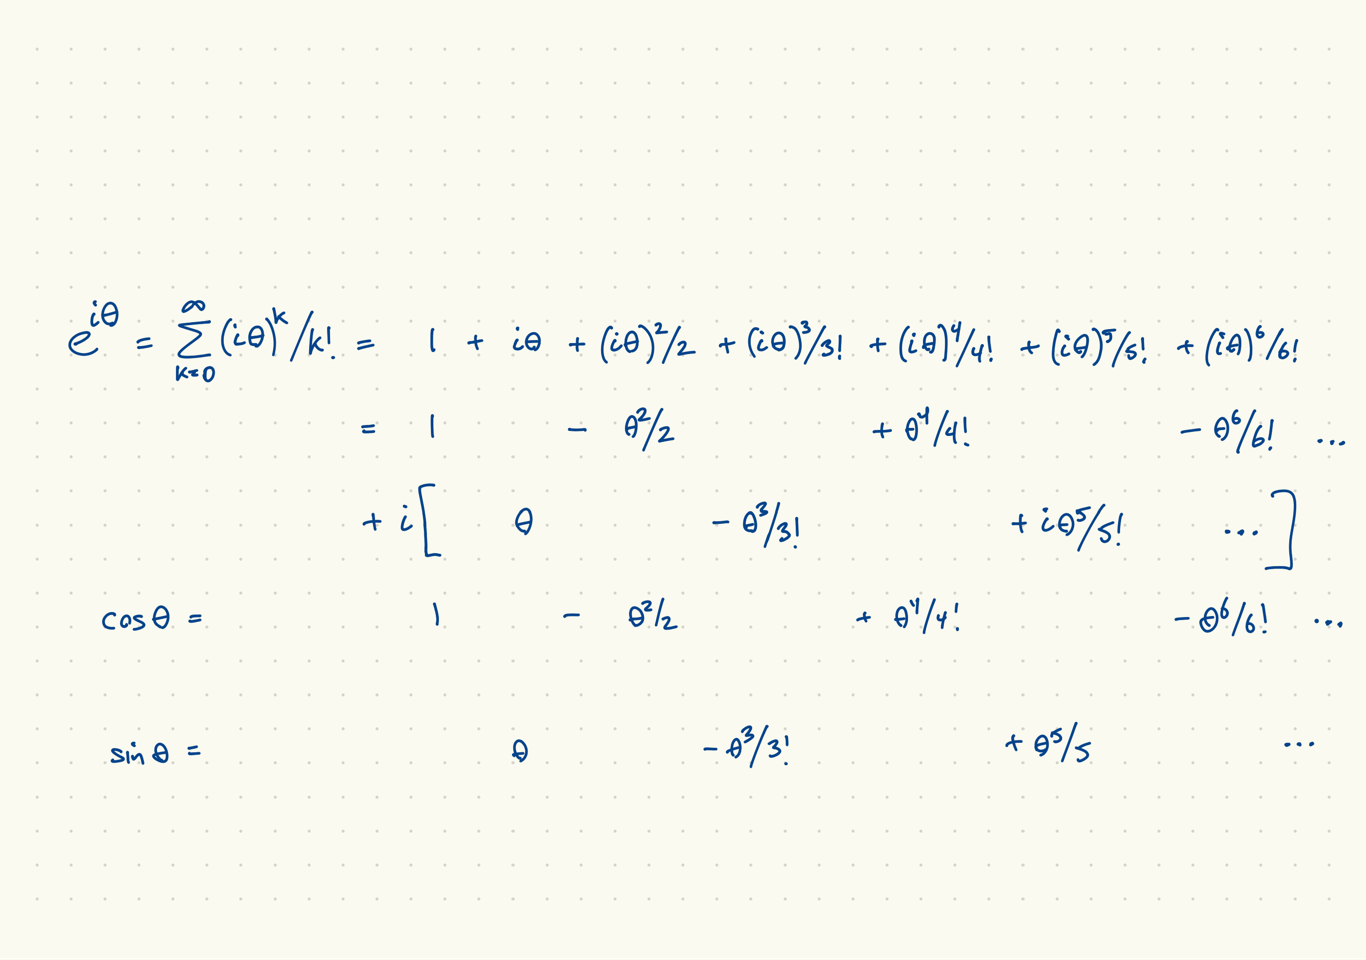 e^{iθ} = ∑_{k=0}^{∞} (iθ)^k/k! = 1 + iθ + (iθ)^2/2 + (iθ)^3/3! + (iθ)^4/4! + (iθ)^5/5! + (iθ)^6/6!
= 1 - θ^2/2 + θ^4/4! - θ^6/6! ...
+ i[ θ - θ^3/3! + iθ^5/5! ... ]
cos θ = 1 - θ^2/2 + θ^4/4! - θ^6/6! ...
sin θ = θ - θ^3/3! + θ^5/5 ...